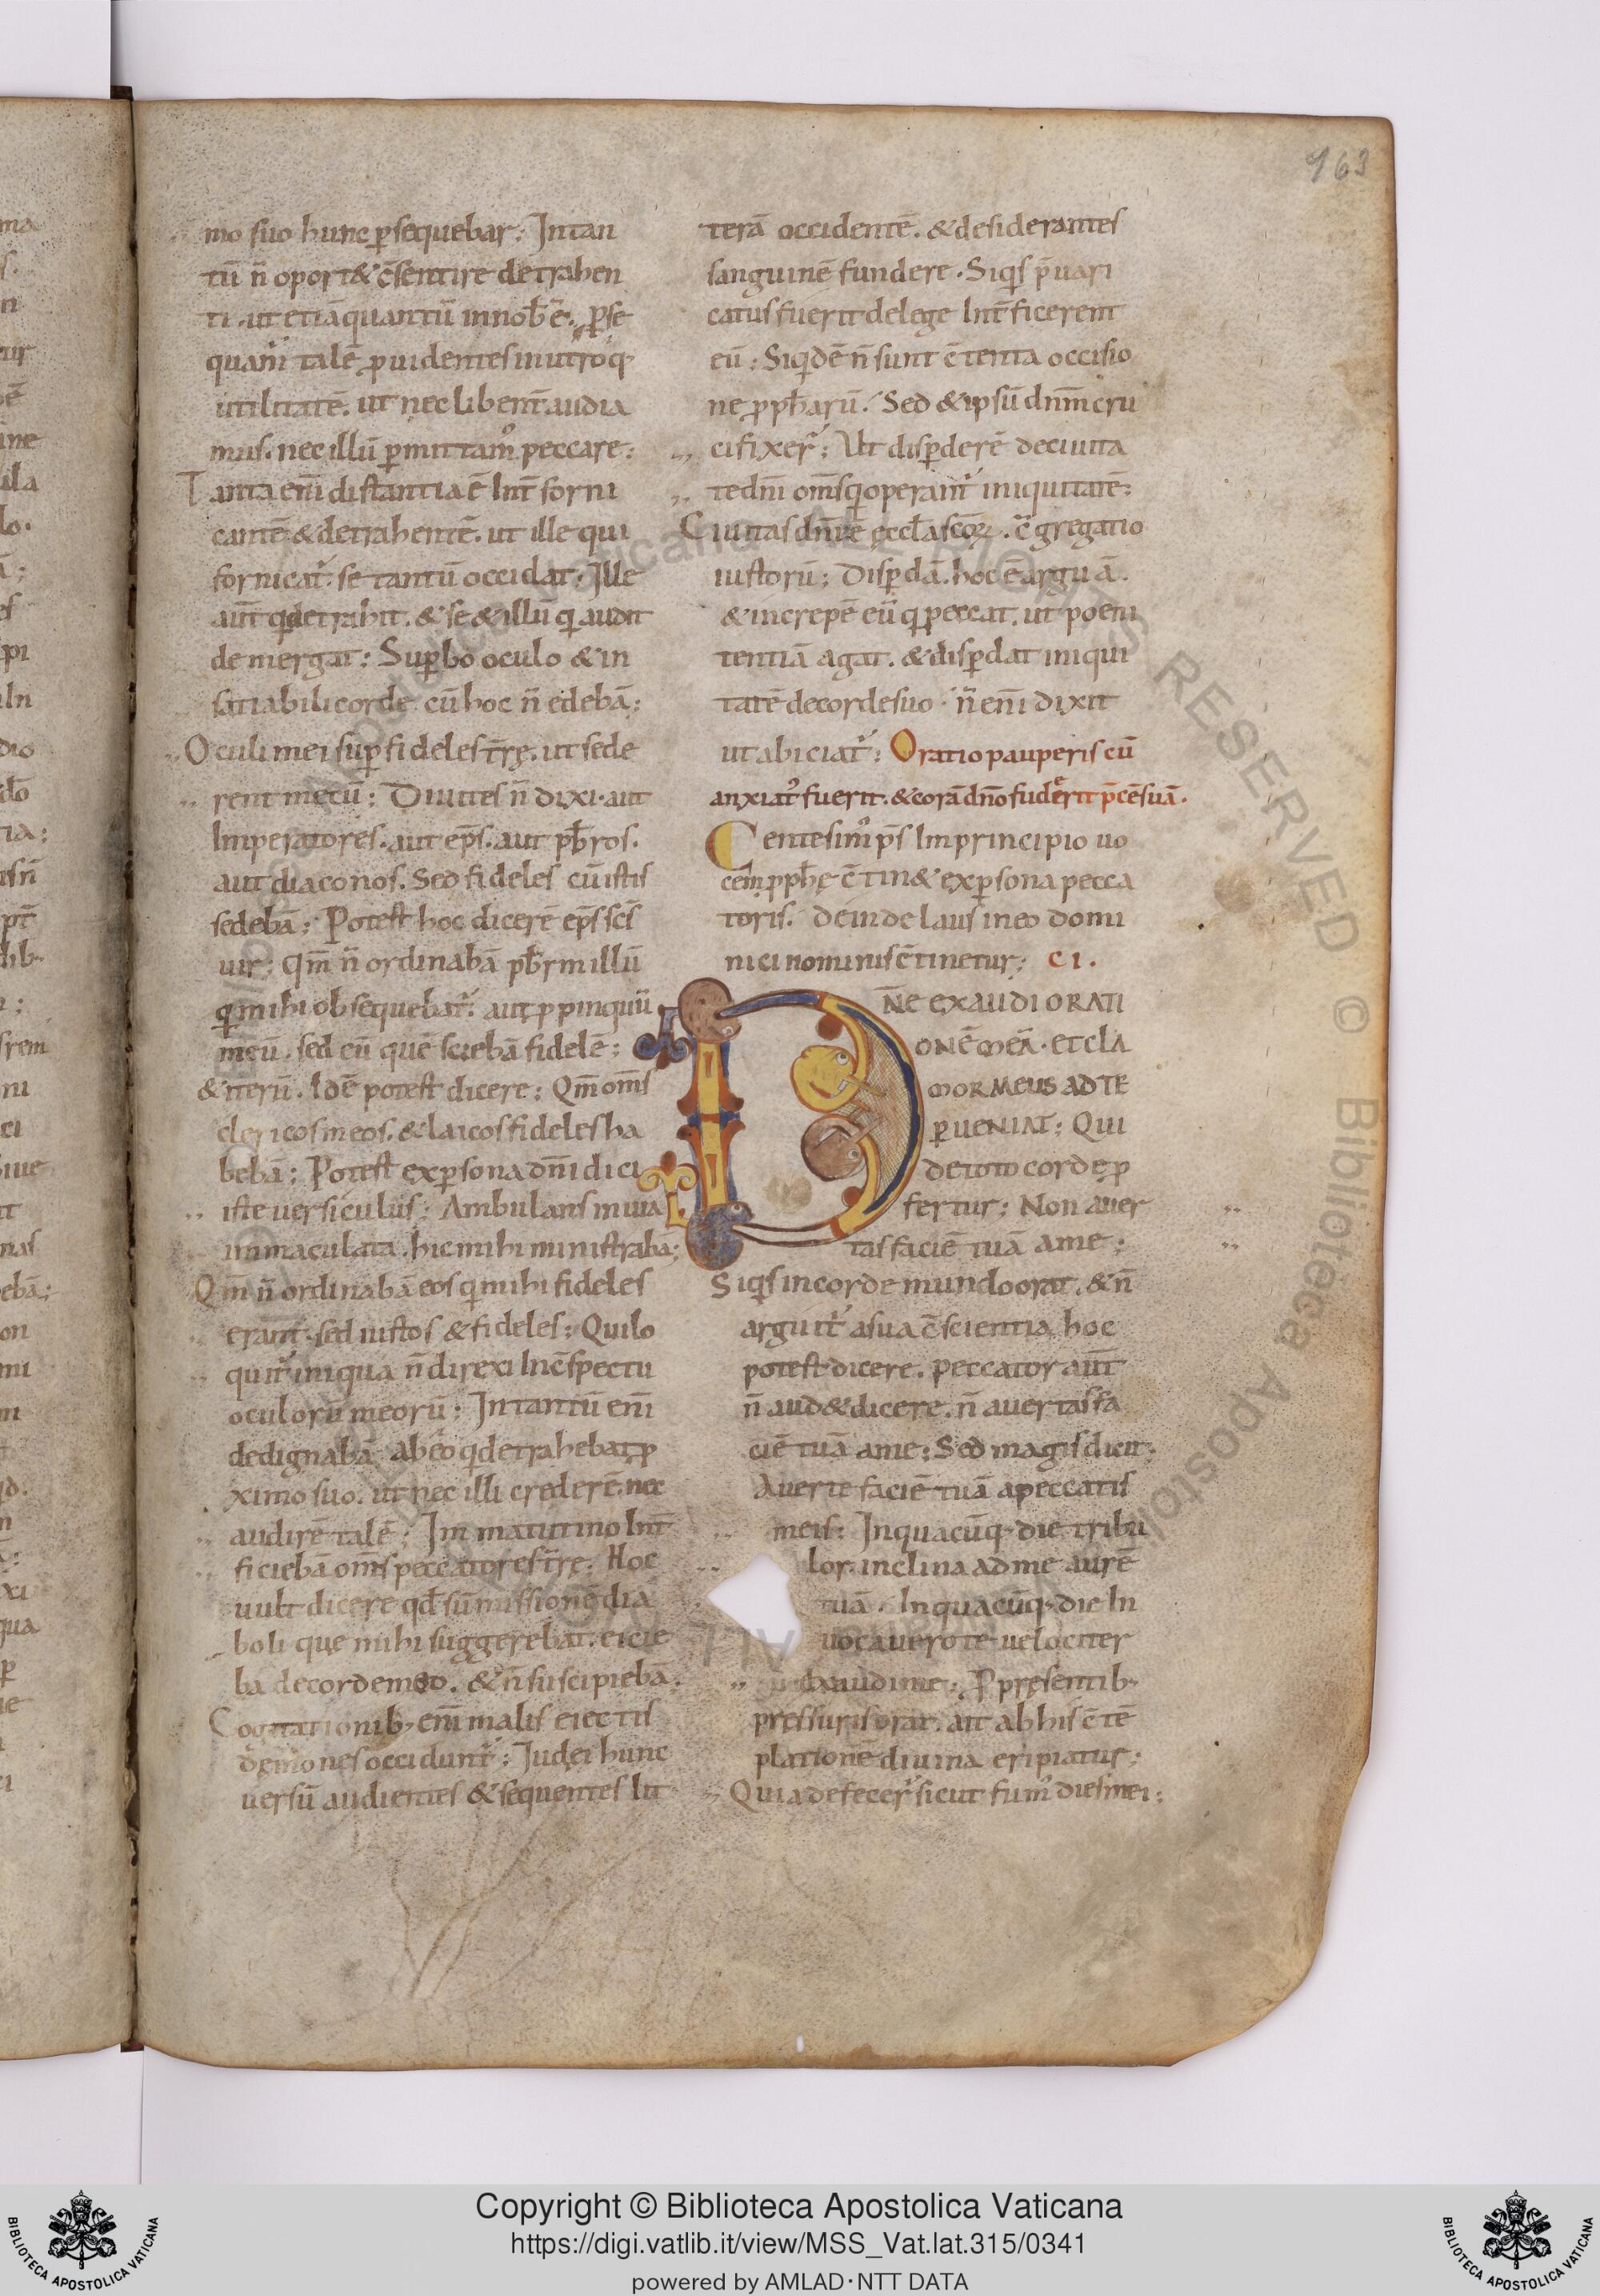 163
mo suo hunc ꝑsequebar; Intan
tū n̄ oport& c̄sentire detrahen
ti. ut etiā quantū in nob̄ ē. ꝑse
quam̄ talē ꝓuidentes in utroq;
utilitatē. ut nec libent̄ audia
mus. nec illū ꝑmittam᷒ peccare;
Tanta eni̅ distantia ē int̄ forni
cantē & detrahentē. ut ille qui
fornicat᷑. se tantū occidat; Ille
aut̄ qui detrahit. & se & illū qui audit
demergat; Suꝑbo oculo & in
satiabili corde cū hoc n̄ edebā;
Oculi mei suꝑ fideles tr̄ę. ut sede
rent mecū; Diuites n̄ dixi. aut
Imperatores. aut ep̄s. aut pb̄ros.
aut diaconos. Sed fideles cū istis
sedebā; Potest hoc dicere ep̄s sc̄s
uir; Qm̄ n̄ ordinabā pb̄rm illū
qui mihi obsequebat᷑. aut ꝓpinquū
meū. sed eū quē sciebā fidelē;
& iterū. Idē potest dicere; Qm̄ om̄s
clericos meos. & laicos fideles ha
bebā; Potest ex ꝑsona dn̄i dici
iste uersiculus; Ambulans in uia
immaculata. hic mihi ministrabā;
Qm̄ n̄ ordinabā eos qui mihi fideles
erant. sed iustos & fideles; Qui lo
quit᷑ iniqua n̄ direxi In c̄spectu
oculorū meorū; In tantū eni̅
dedignabā ab eo qui detrahebat ꝓ
ximo suo. ut nec illi crederē. nec
audirē talē; In matutino Int̄
ficiebā om̄s peccatores tr̄ę. Hoc
uult dicere qd̄ sūmissionē dia
boli quę mihi suggerebat. eicie
ba de corde meo. & n̄ suscipiebā.
Cogitationib; eni̅ malis eiectis
demones occidunt᷑; Iudei hunc
uersū audientes & sequentes lit
terā occidentē. & desiderantes
sanguinē fundere. Si quis p̄uari
catus fuerit de lege Int̄ficerent
eū; Siquidē n̄ sunt c̄tenta occisio
ne ꝓph̄arū. Sed & ipsū dn̄m cru
cifixer᷑; Ut disꝑderē de ciuita
te dn̄i om̄s qui operant᷑ iniquitatē;
Ciuitas dn̄i ē ęccl̄a sc̄oꝝ. c̄gregatio
iustorū; Disꝑdā. hoc ē arguā.
& increpē eū qui peccat. ut poeni
tentiā agat. & disꝑdat iniqui
tatē de corde suo. n̄ eni̅ dixit
ut abiciat᷑; Oratio pauperis cū
anxiat᷒ fuerit. & corā dn̄o fuderit p̄cē suā.
Centesim᷒ ps̄ Im principio uo
cem ꝓph̄ę c̄tin& ex ꝑsona pecca
toris. deinde laus in eo domi
nici nominis c̄tinetur; CI.
DN̄E EXAUDI ORATI
ONĒ MEĀ. ET CLA
MOR MEUS AD TE
ꝑUENIAT; QUI
de toto corde ꝓ
fertur; Non auer
tas faciē tuā a me;
Si quis in corde mundo orat. & n̄
arguit᷑ a sua c̄scientia hoc
potest dicere. peccator aut̄
n̄ aud& dicere. n̄ auertas fa
ciē tuā a me; Sed magis dicit;
Auerte faciē tuā a peccatis
meis; In quacūq; die tribu
lor. inclina ad me aurē
tuā. In quacūq; die In
uocauero te uelociter
exaudi me; ꝓ pręsentib;
pressuris orat. aut ab his c̄tē
platione diuina eripiatur;
Quia defecer᷑ sicut fum᷒ dies mei;
Copyright © Biblioteca Apostolica Vaticana
https://digi.vatlib.it/view/MSS_Vat.lat.315/0341
powered by AMLAD·NTT DATA
BIBLIOTECA APOSTOLICA VATICANA
BIBLIOTECA APOSTOLICA VATICANA